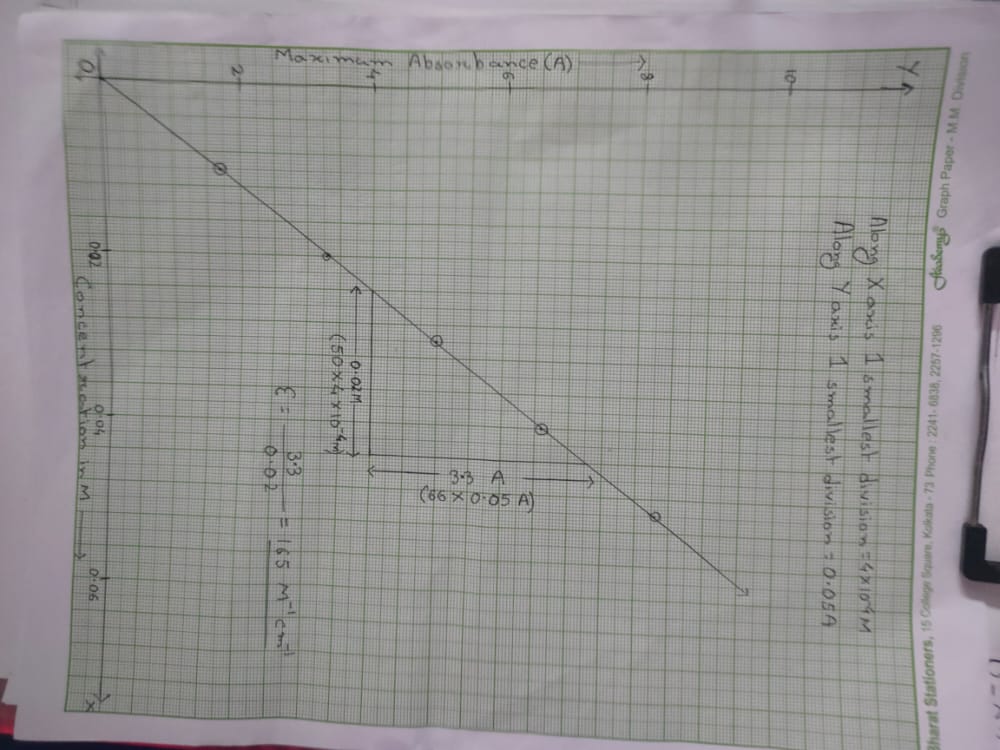 Bharat Stationers, 15 College Square, Kolkata - 73 Phone : 2241- 6838, 2257-1296 Academy's Graph Paper - M.M. Division
Y
Along X axis 1 smallest division = 4×10⁻⁴M
Along Y axis 1 smallest division = 0.05A
10
8
6
4
2
0
Maximum Absorbance (A)
3.3 A
(66 × 0.05 A)
0.02M
(50 × 4 × 10⁻⁴M)
ε = 3.3 / 0.02 = 165 M⁻¹ cm⁻¹
0.02
0.04
0.06
X
Concentration in M